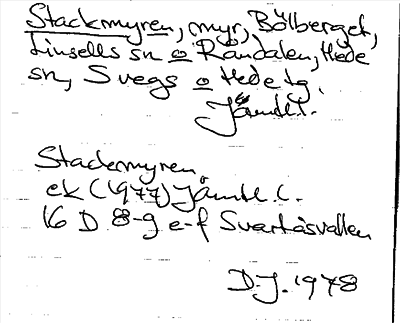 Stackmyren, myr, Bölberget,
Linsells sn o Råndalen, Hede
sn, Svegs o Hede tg.
Jämtl.
Stackmyren
ek (1977) Jämtl. l.
16 D 8-g e-f Svartåsvallen
D.J. 1978